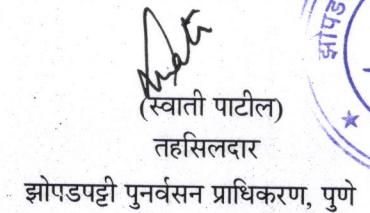 (स्वाती पाटील)
तहसिलदार
झोपडपट्टी पुनर्वसन प्राधिकरण, पुणे
झोपड